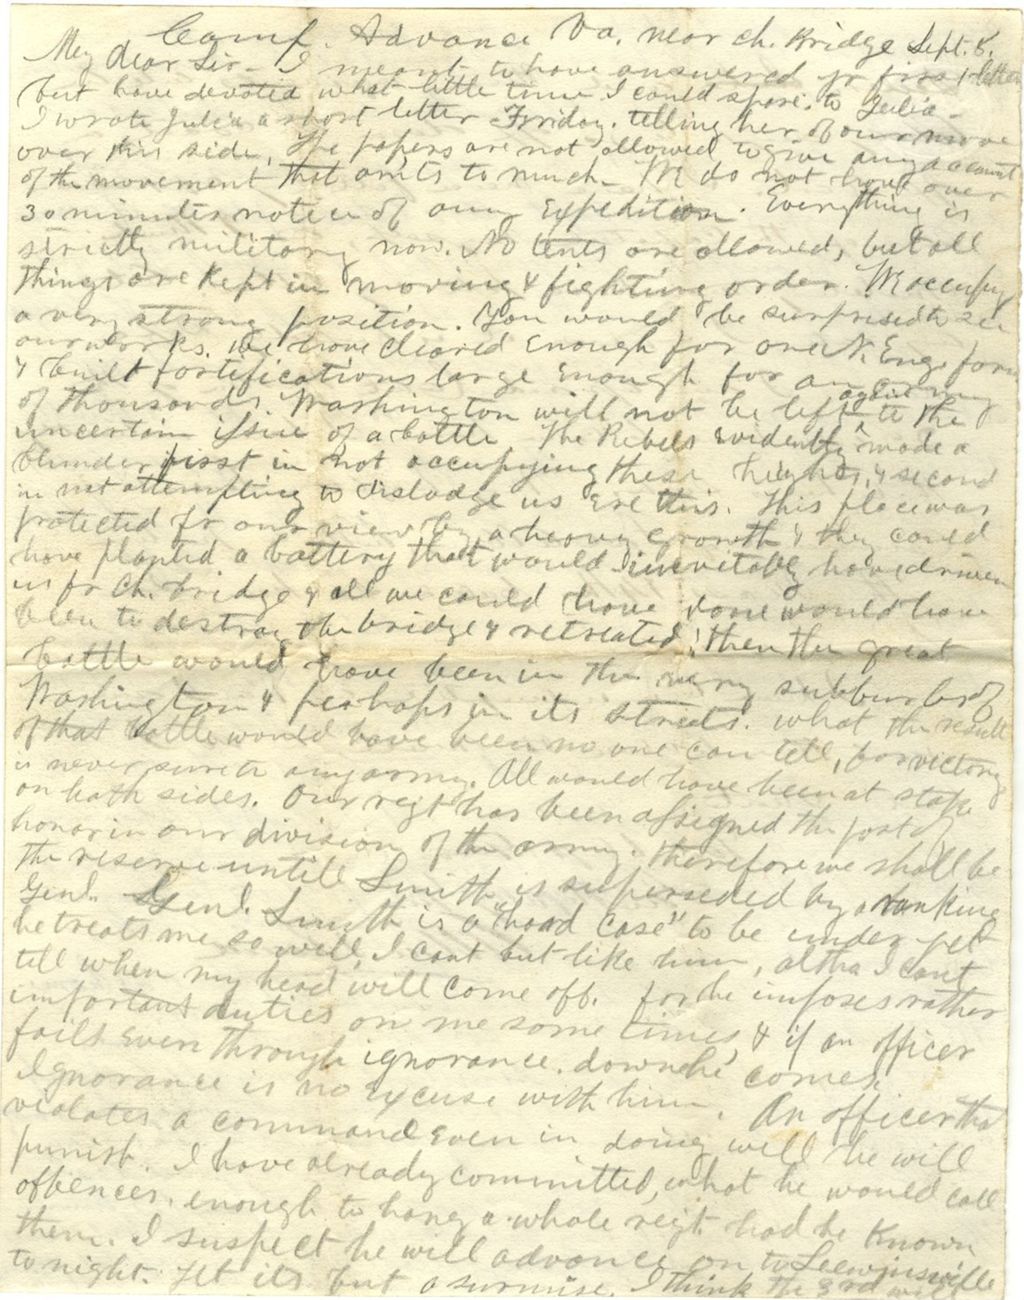 Camp. Advance Va. near Ch. Bridge Sept. 8.
My Dear Sir - I meant to have answered yr first letter
but have devoted what little time I could spare, to Julia -
I wrote Julia a short letter Friday, telling her of our move
over this side, The papers are not allowed to give any account
of the movement that amts to much - We do not have over
30 minutes notice of any Expedition. Everything is
strictly military now. No tents are allowed, but all
things are Kept in moving & fighting order. We occupy
a very strong position. You would be surprised to see
our works. We have cleared Enough for one N Eng. farm
& built fortifications large Enough for an army
of thousands. Washington will not be left again to the
uncertain issue of a battle, The Rebels Evidently made a
blunder first in not occupying these heights, & second
in not attempting to dislodge us Ere this. This place was
protected fr our view by a heavy growth & they could
have planted a battery that would inevitably have driven
us fr Ch. bridge & all we could have done would have
been to destroy the bridge & retreated; then the great
battle would have been in the very subburbs of
Washington & perhaps in its streets. What the result
of that battle would have been no one can tell, for victory
is never sure to any army. All would have been at stake
on both sides. Our regt has been assigned the post of
honor in our division of the army. therefore we shall be
the reserve until Smith is superseded by a ranking
Genl. Genl. Smith is a "hard case" to be under yet
he treats me so well, I cant but like him, altho I cant
tell when my head will come off. for he imposes rather
important duties on me some times & if an officer
fails Even through ignorance. down he comes.
Ignorance is no excuse with him. An officer that
violates a command Even in doing well he will
punish. I have already committed, what he would call
offences, enough to hang a whole regt. had he Known
them. I suspect he will advance on to Leewinsville
to night. Yet its but a surmise. I think the 3rd will